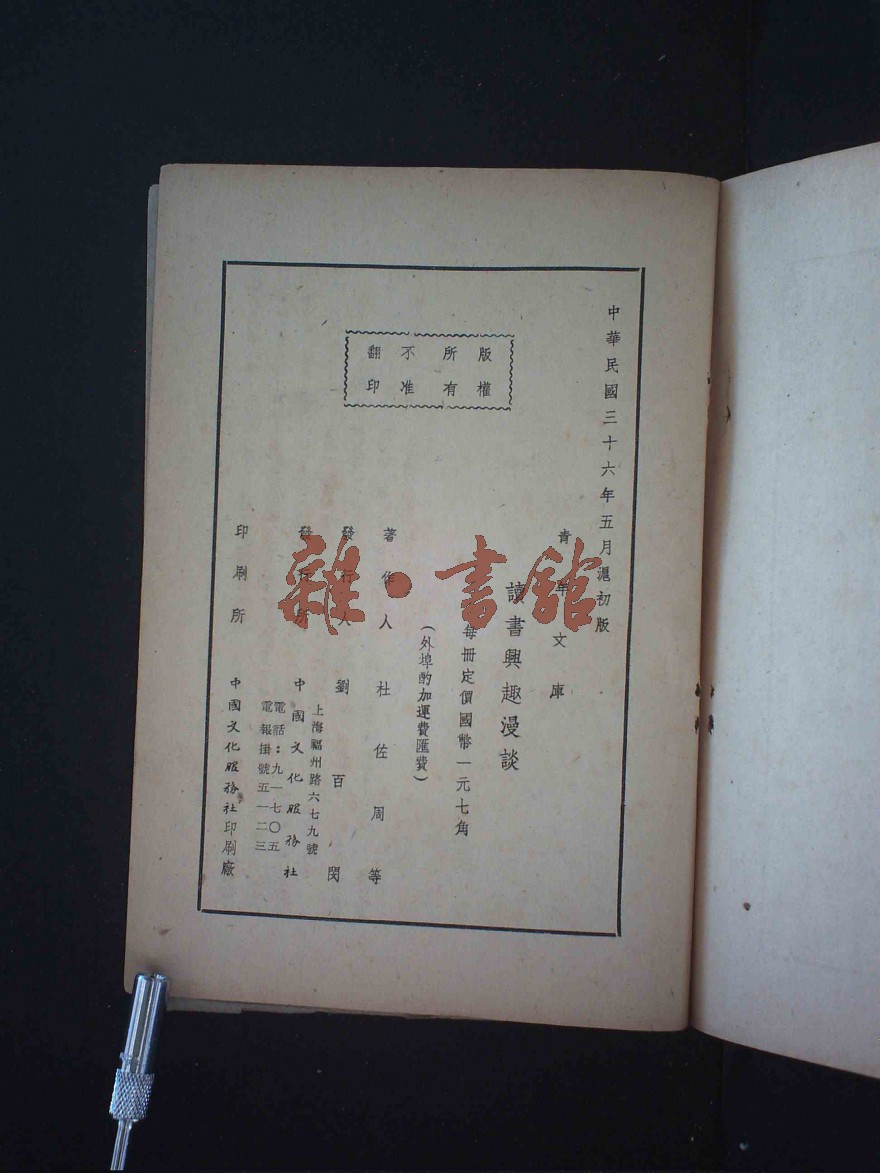 中華民國三十六年五月滬初版
版權所有
不准翻印
青年文庫
讀書興趣漫談
每冊定價國幣一元七角
(外埠酌加運費匯費)
著作人 杜佐周等
發行人 劉百閔
發行所 中國文化服務社
上海福州路六七九號
電話:九一七〇五
電報掛號五一二三
印刷所 中國文化服務社印刷廠
雜·書館